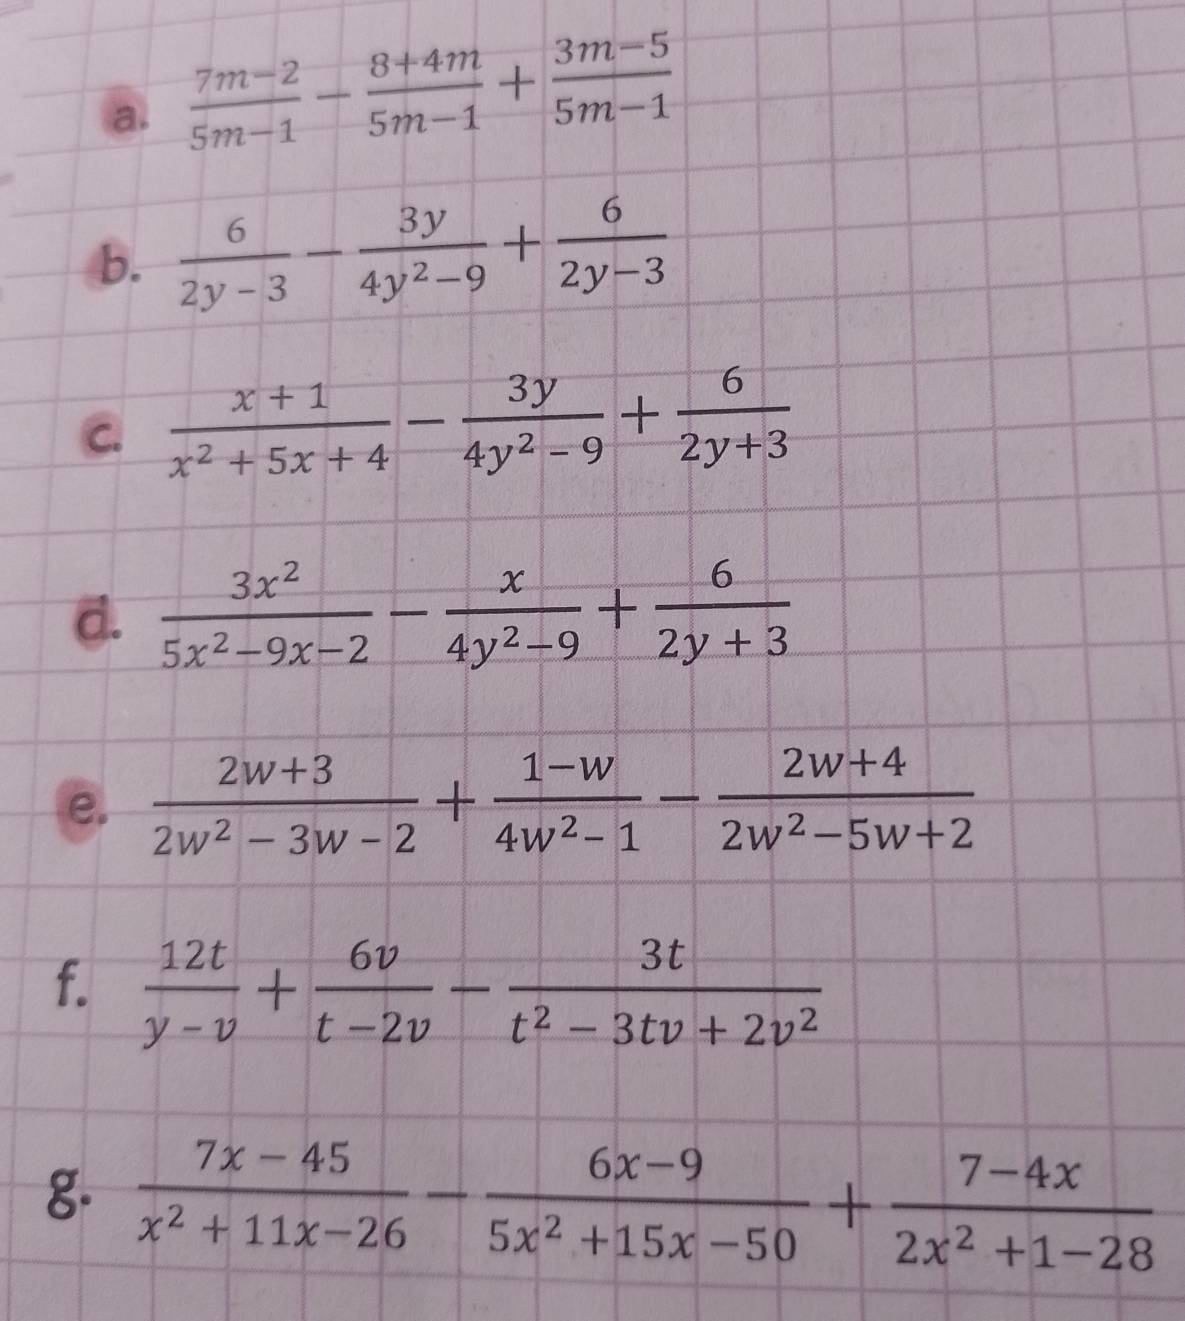 a. \frac{7m-2}{5m-1} - \frac{8+4m}{5m-1} + \frac{3m-5}{5m-1}
b. \frac{6}{2y-3} - \frac{3y}{4y^2-9} + \frac{6}{2y-3}
c. \frac{x+1}{x^2+5x+4} - \frac{3y}{4y^2-9} + \frac{6}{2y+3}
d. \frac{3x^2}{5x^2-9x-2} - \frac{x}{4y^2-9} + \frac{6}{2y+3}
e. \frac{2w+3}{2w^2-3w-2} + \frac{1-w}{4w^2-1} - \frac{2w+4}{2w^2-5w+2}
f. \frac{12t}{y-v} + \frac{6v}{t-2v} - \frac{3t}{t^2-3tv+2v^2}
g. \frac{7x-45}{x^2+11x-26} - \frac{6x-9}{5x^2+15x-50} + \frac{7-4x}{2x^2+1-28}